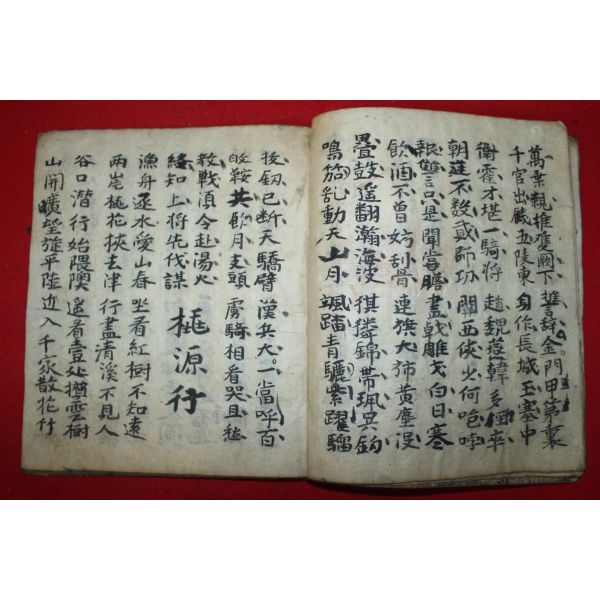 萬乘親推雙闕下 誓辞金門甲第裏
千官出餞五陵東 身作長城玉塞中
衛霍才堪一騎將 趙魏燕韓多勁卒
朝廷不數貳師功 關西俠少何咆哱
報讎只是聞嘗膽 畫戟雕戈白日寒
飲酒不曾妨刮骨 連旗大旆黃塵沒
疊鼓遥翻瀚海波 猉獜錦帶珮吳鈎
鳴笳乱動天山月 颯踏青驪紫躍騮
拔釰已断天驕臂 漢兵大一當呼百
皈鞍共飲月支頭 虜騎相看哭且愁
教戰湏令赴湯火
終知上將先伐謀 桃源行
漁舟逐水愛山春 坐看紅樹不知遠
兩岸桃花挾去津 行盡清溪不見人
谷口潛行始隈隩 遙看壹处攢雲樹
山開曠望旋平陸 近入千家散花竹